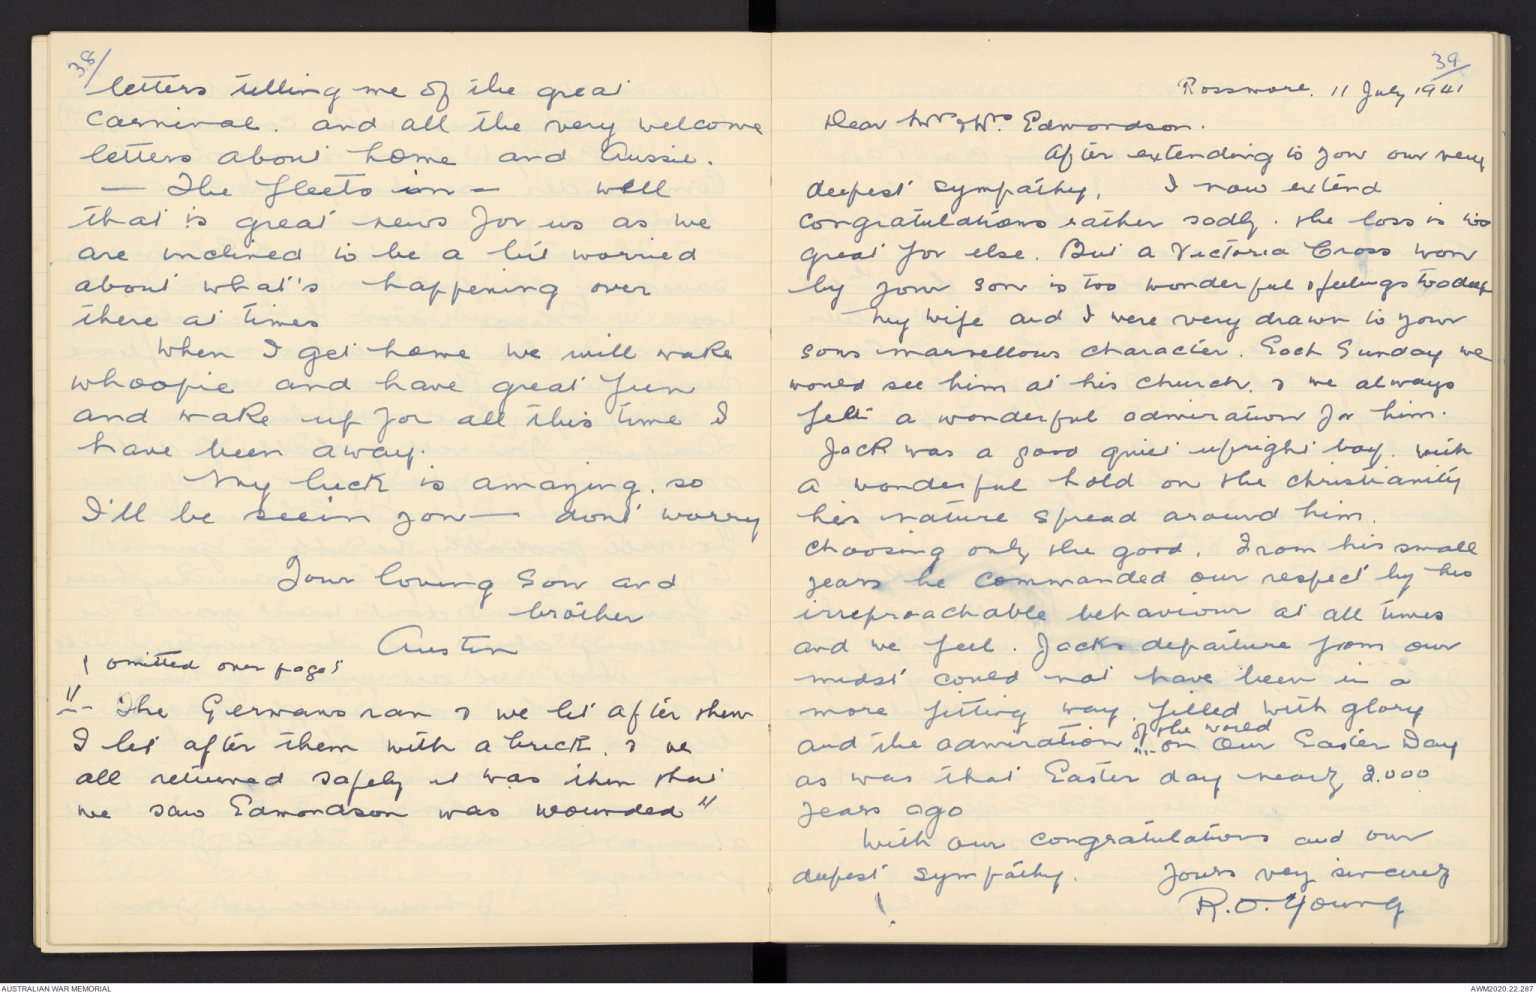 38/
letters telling me of the great
Carnival. and all the very welcome
letters about home and Aussie.
— The fleets in — well
that is great news for us as we
are inclined to be a bit worried
about what's happening over
there at times
When I get home we will make
whoopie and have great fun
and make up for all this time I
have been away.
My luck is amazing, so
I'll be seein you — dont worry
Your loving Son and
brother
Austin
( omitted over page)
"— The Germans ran & we let after them
I let after them with a brick. & we
all returned safely it was then that
we saw Edmondson was wounded"
39
Rossmore. 11 July 1941
Dear Mr & Mrs Edmondson.
After extending to you our very
deepest sympathy, I now extend
congratulations rather sadly. the loss is too
great for else. But a Victoria Cross won
by your son is too wonderful & feelings too deep
My wife and I were very drawn to your
sons marvellous character. Each Sunday we
would see him at his church. & we always
felt a wonderful admiration for him.
Jack was a good quiet upright boy. with
a wonderful hold on the christianity
his nature spread around him.
choosing only the good. From his small
years he commanded our respect by his
irreproachable behaviour at all times
and we feel. Jacks departure from our
midst could not have been in a
more fitting way. filled with glory
and the admiration of the world on Our Easter Day
as was that Easter day nearly 2.000
years ago
With our congratulations and our
deepest sympathy. Yours very sincerely
R.O. Young
AUSTRALIAN WAR MEMORIAL
AWM2020.22.287